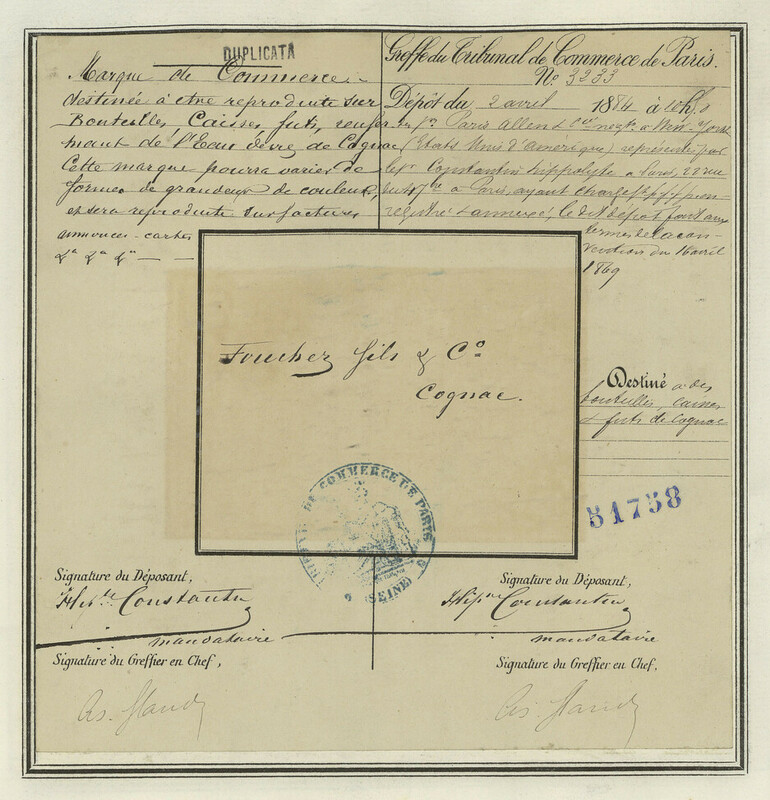 DUPLICATA
Marque de Commerce
destinée à être reproduite sur
Bouteilles Caisses futs, renfer
mant de l'Eau de vie de Cognac
Cette marque pourra varier de
formes de grandeur de couleur,
et sera reproduite sur factures
annonces - cartes
Greffe du Tribunal de Commerce de Paris.
No. 3233
Dépôt du 2 avril 1884 à
Paris Allen & Cie negts à New-York
(Etats Unis d'amérique) représenté par
Constantin Hippolyte a Paris, 22 rue
a Paris, ayant
registré & annexé, le dit dépôt fait aux
termes de la con-
vention du 16 avril
1869
Foucher fils & Co
Cognac.
Destiné a des
bouteilles, caisses
& futs de Cognac
TRIBAL DE COMMERCE DE PARIS
(SEINE)
51758
Signature du Déposant,
Hipte Constantin
mandataire
Signature du Greffier en Chef,
Signature du Déposant,
Hipte Constantin
mandataire
Signature du Greffier en Chef,